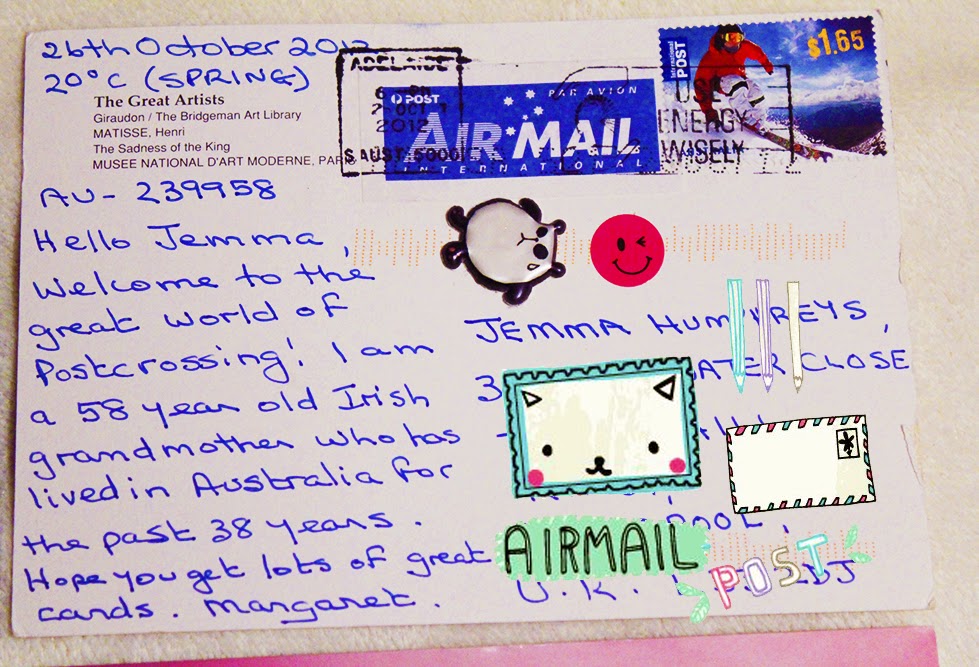 26th October 2012
20°C (SPRING)
The Great Artists
Giraudon / The Bridgeman Art Library
MATISSE, Henri
The Sadness of the King
MUSEE NATIONAL D'ART MODERNE, PARIS
AU-239958
Hello Jemma,
Welcome to the
great world of
Postcrossing! I am
a 58 year old Irish
grandmother who has
lived in Australia for
the past 38 years.
Hope you get lots of great
cards. Margaret.
ADELAIDE
2012
S AUST 5000
POST
PAR AVION
AIR MAIL
INTERNATIONAL
International
POST
$1.65
USE
ENERGY
WISELY
JEMMA HUMPHREYS,
CLOSE
U.K.
AIRMAIL
POST